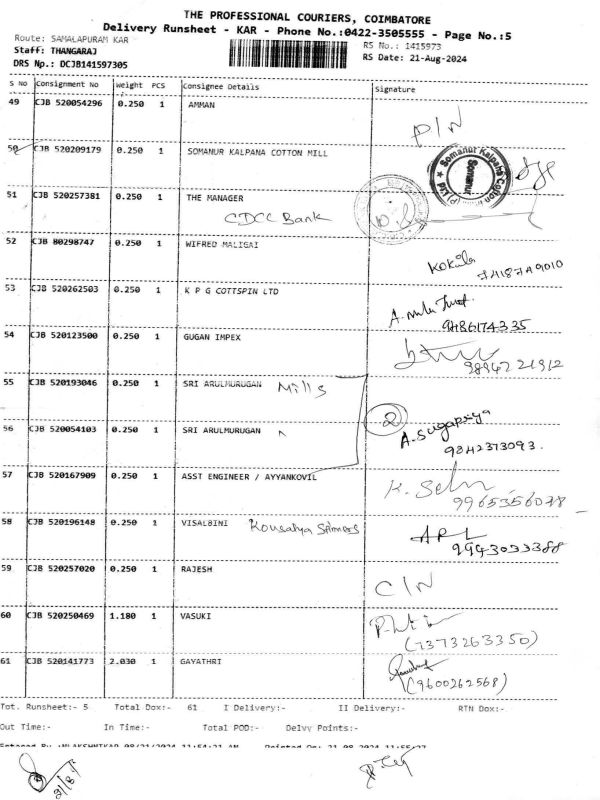 THE PROFESSIONAL COURIERS, COIMBATORE
Delivery Runsheet - KAR - Phone No.:0422-3505555 - Page No.:5
Route: SAMALAPURAM KAR
RS No.: 1415973
Staff: THANGARAJ
RS Date: 21-Aug-2024
DRS Np.: DCJB141597305
S No Consignment No Weight PCS Consignee Details Signature
49 CJB 520054296 0.250 1 AMMAN
50 CJB 520209179 0.250 1 SOMANUR KALPANA COTTON MILL
Somanur Kalpana Cotton
Somanur
51 CJB 520257381 0.250 1 THE MANAGER
CDCC Bank
52 CJB 80298747 0.250 1 WIFRED MALIGAI
Kokila
53 CJB 520262503 0.250 1 K P G COTTSPIN LTD
9486174335
54 CJB 520123500 0.250 1 GUGAN IMPEX
55 CJB 520193046 0.250 1 SRI ARULMURUGAN Mills
2
56 CJB 520054103 0.250 1 SRI ARULMURUGAN
A. Sugapriya
9842373093.
57 CJB 520167909 0.250 1 ASST ENGINEER / AYYANKOVIL
9965356078
58 CJB 520196148 0.250 1 VISALBINI Kousalya Spinners
9943033388
59 CJB 520257020 0.250 1 RAJESH
60 CJB 520250469 1.180 1 VASUKI
(7373263350)
61 CJB 520141773 2.030 1 GAYATHRI
(9600262568)
Tot. Runsheet:- 5 Total Dox:- 61 I Delivery:- II Delivery:- RTN Dox:-
Out Time:- In Time:- Total POD:- Delvy Points:-